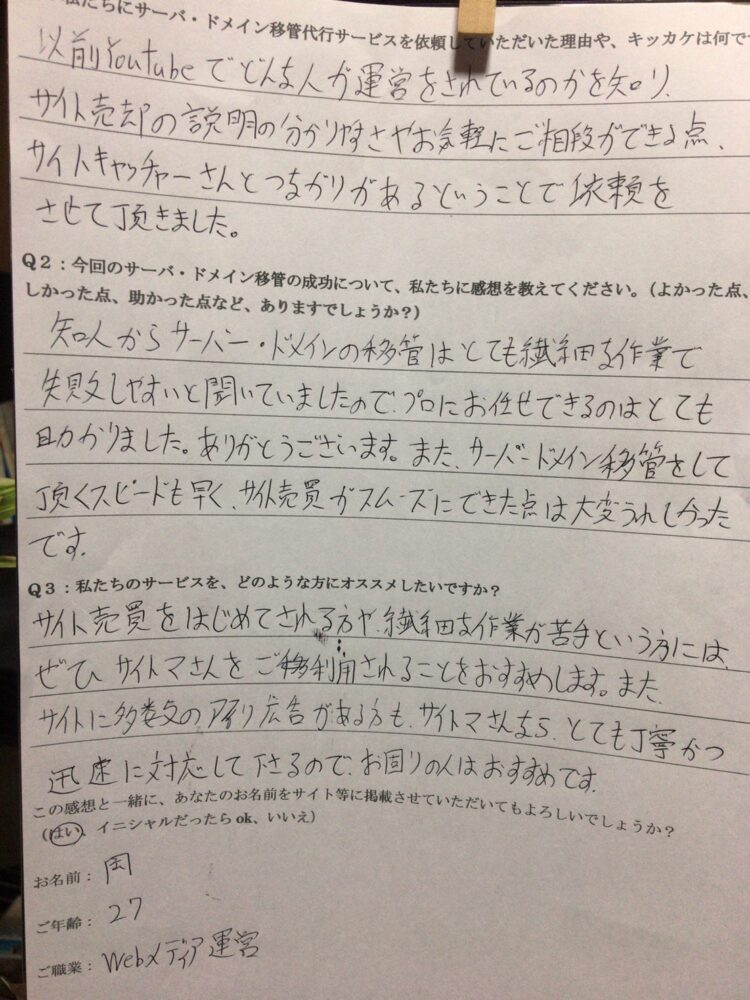 私たちにサーバ・ドメイン移管代行サービスを依頼していただいた理由や、キッカケは何で
以前Youtubeでどんな人が運営をされているのかを知り、
サイト売却の説明の分かりやすさやお気軽にご相談ができる点、
サイトキャッチャーさんとつながりがあるということで依頼を
させて頂きました。
Q2:今回のサーバ・ドメイン移管の成功について、私たちに感想を教えてください。(よかった点、
しかった点、助かった点など、ありますでしょうか?)
知人からサーバー・ドメインの移管はとても繊細な作業で
失敗しやすいと聞いていましたので、プロにお任せできるのはとても
助かりました。ありがとうございます。また、サーバードメイン移管をして
頂くスピードも早く、サイト売買がスムーズにできた点は大変うれしかった
です。
Q3:私たちのサービスを、どのような方にオススメしたいですか?
サイト売買をはじめてされる方や、繊細な作業が苦手という方には、
ぜひサイトマさんをご利用されることをおすすめします。また、
サイトに多数のアフィリ広告がある方も、サイトマさんなら、とても丁寧かつ
迅速に対応して下さるので、お困りの人はおすすめです。
この感想と一緒に、あなたのお名前をサイト等に掲載させていただいてもよろしいでしょうか?
(はい、イニシャルだったらok、いいえ)
お名前: 岡
ご年齢: 27
ご職業: Webメディア運営